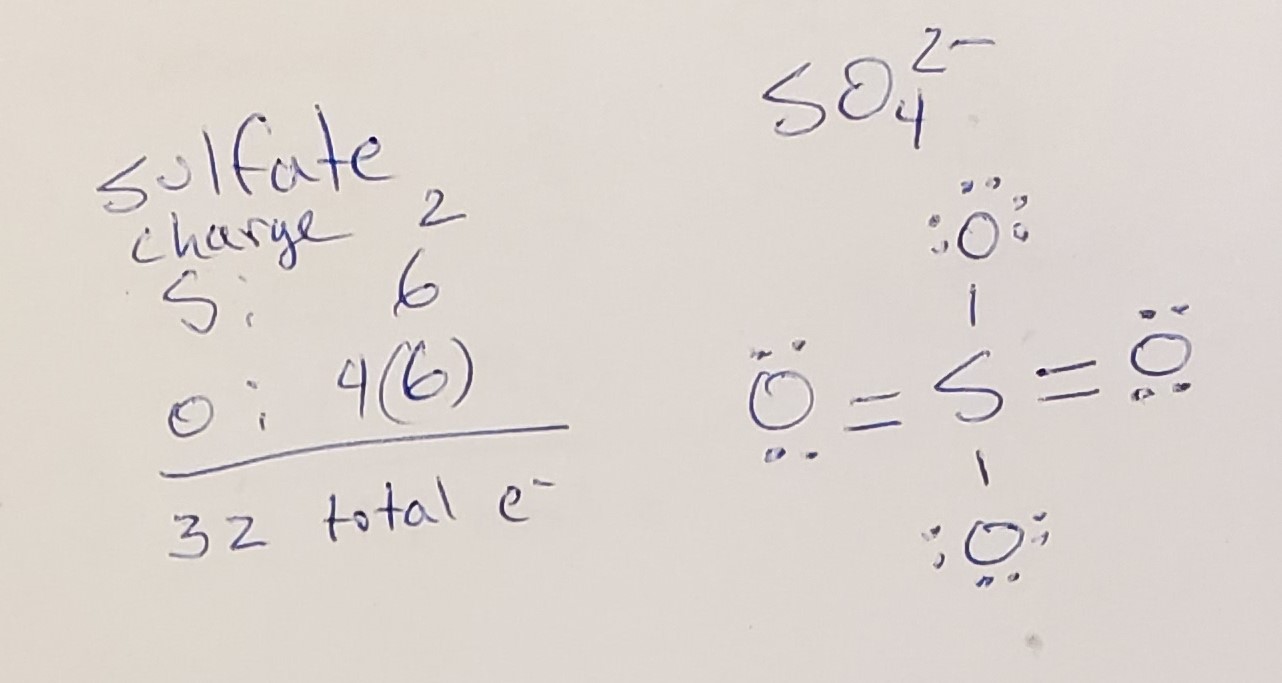 sulfate
charge 2
S: 6
O: 4(6)
32 total e⁻
SO₄²⁻
O
O = S = O
O